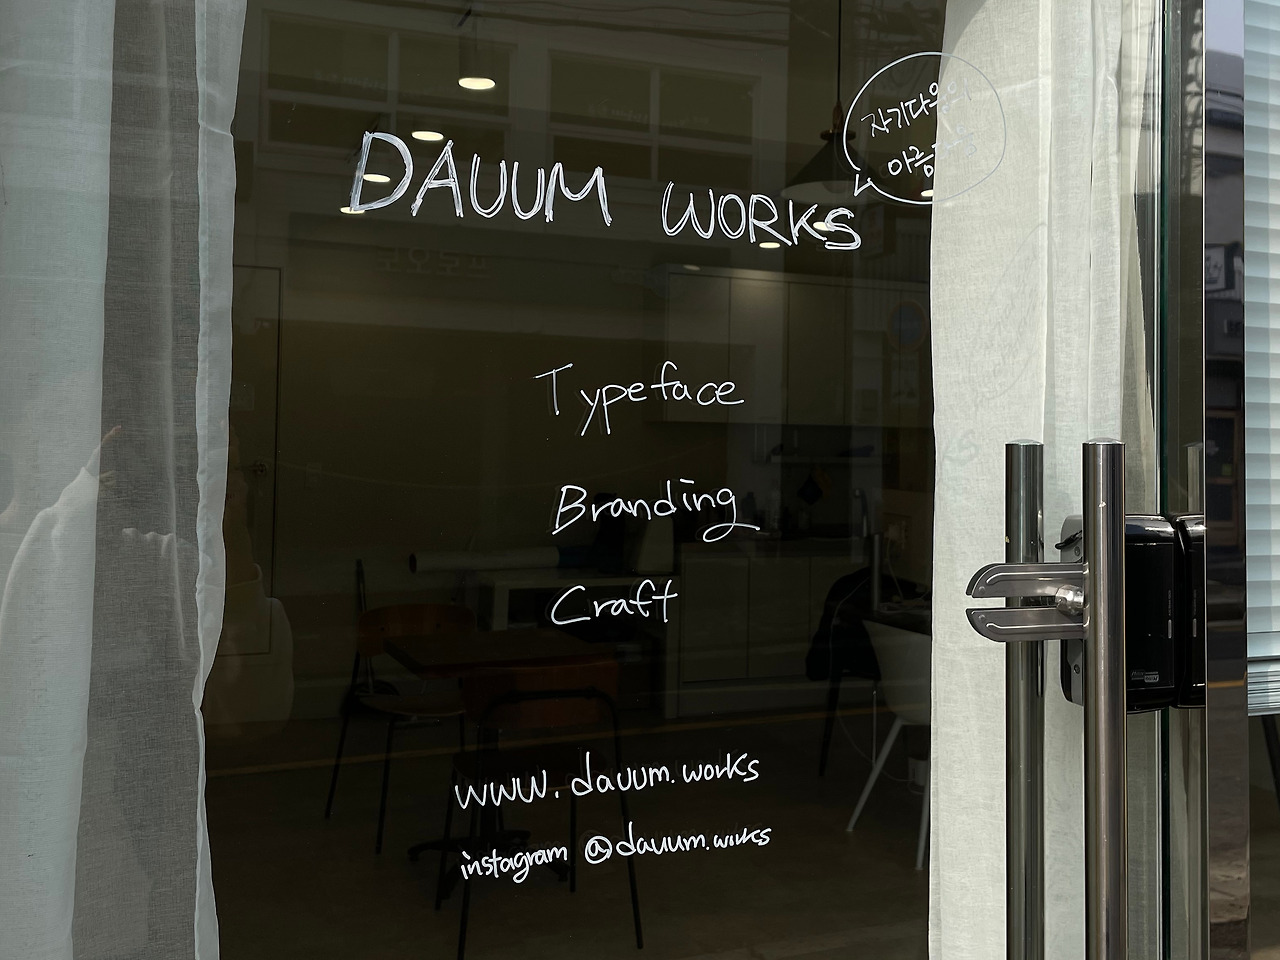 DAUUM WORKS
자기다움의
아름다움
Typeface
Branding
Craft
www.dauum.works
instagram @dauum.works